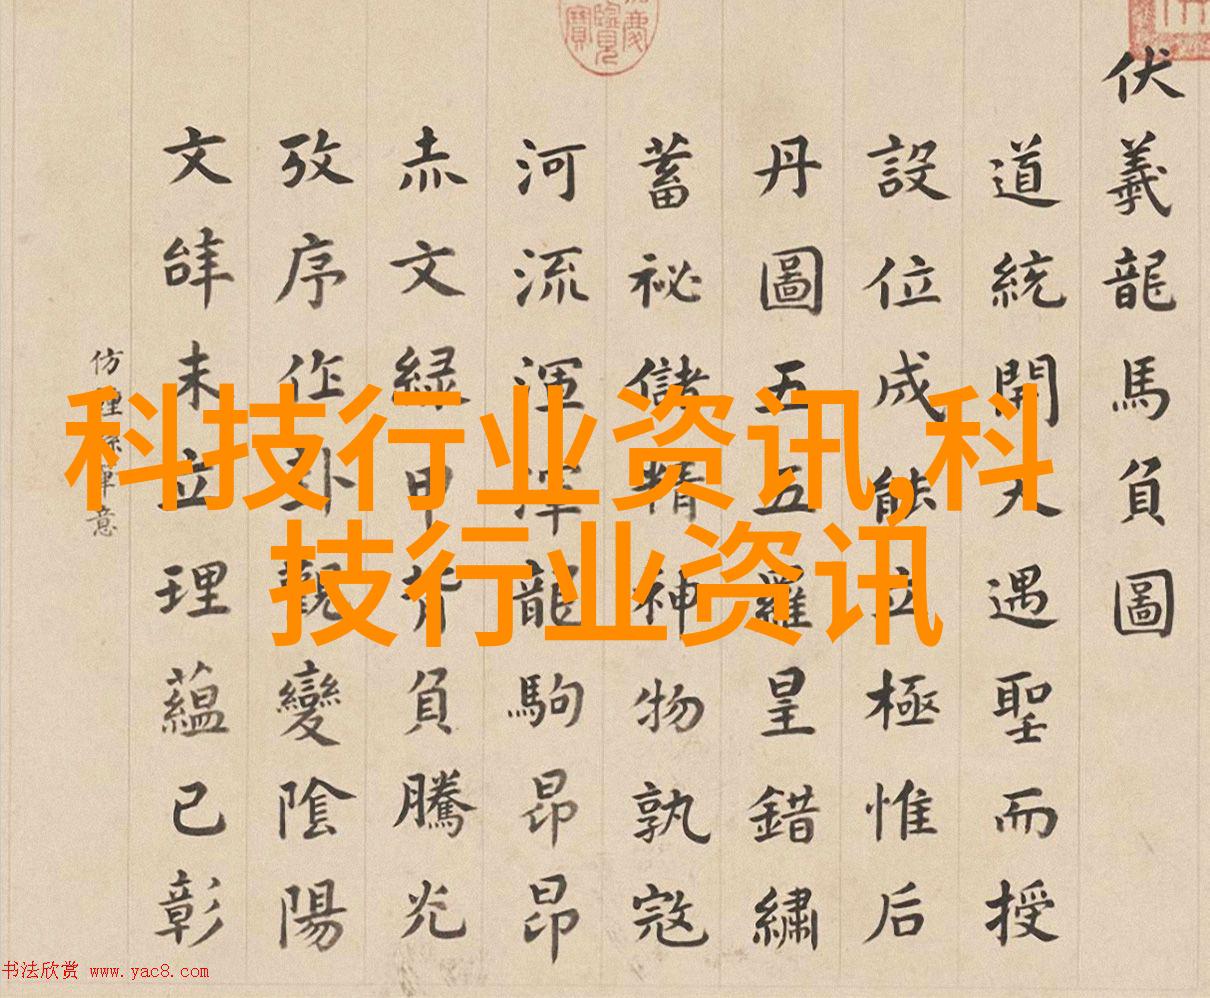 伏羲龍馬負圖
道統開天遇聖而授
設位成能立極惟后
丹圖五五羅星錯繡
蓄祕儲精神物孰寇
河流渾渾龍駒昂昂
赤文緑甲背負騰光
攷序作卦觀變陰陽
文辝未立理蘊已彰
仿鍾繇筆意
科技行业资讯,科
技行业资讯
书法欣赏 www.yac8.com